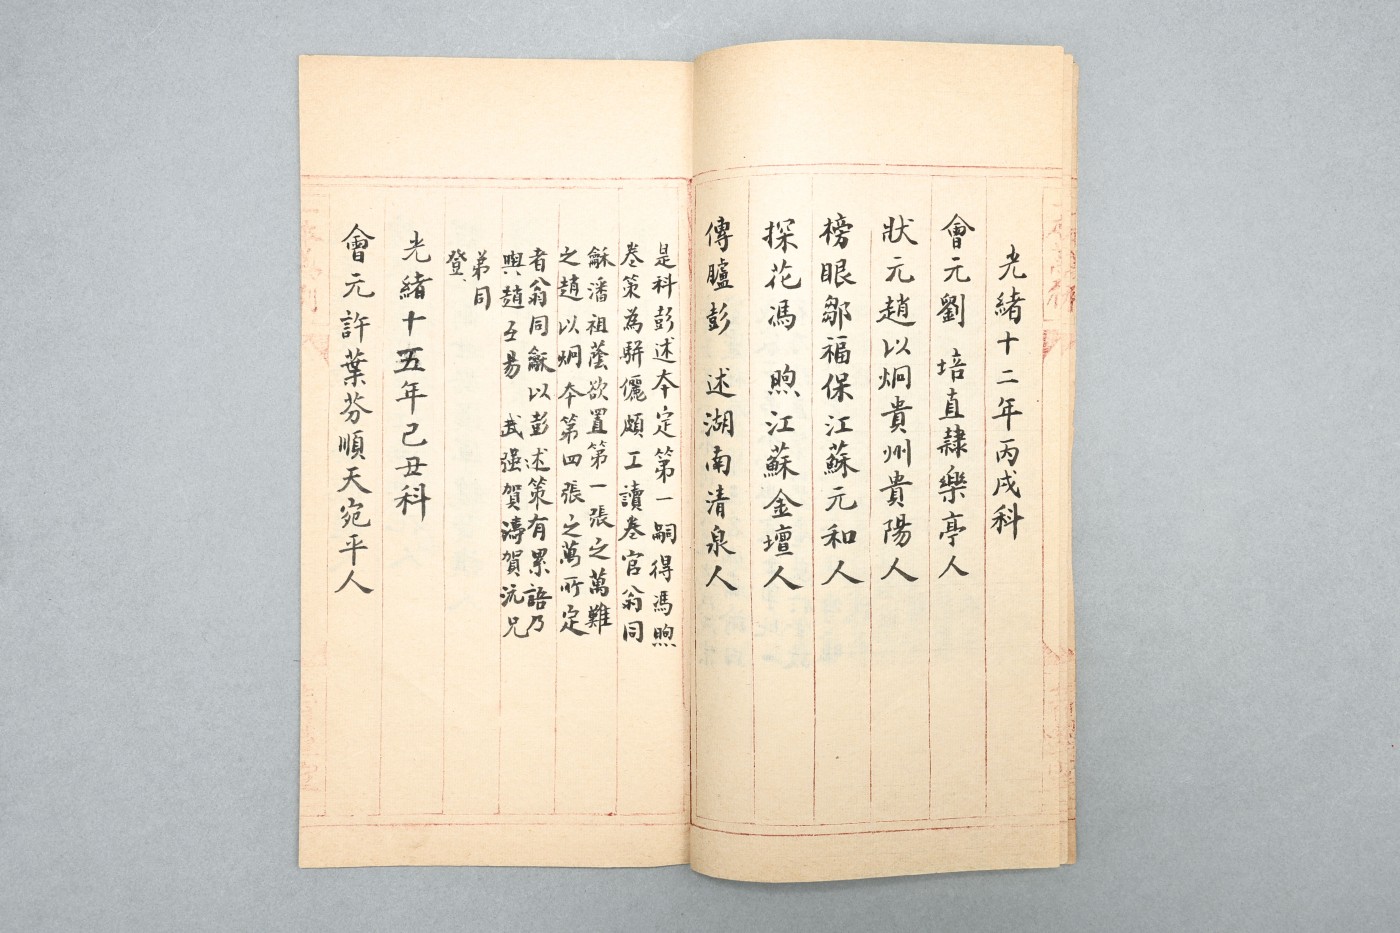 光緒十二年丙戌科
會元劉培直隸樂亭人
狀元趙以炯貴州貴陽人
榜眼鄒福保江蘇元和人
探花馮煦江蘇金壇人
傳臚彭述湖南清泉人
是科彭述本定第一嗣得馮煦
卷策為駢儷頗工讀卷官翁同
龢潘祖蔭欲置第一張之萬難
之趙以炯本第四張之萬所定
者翁同龢以彭述策有累語乃
與趙互易 武强賀濤賀沅兄
弟同
登
光緒十五年己丑科
會元許葉芬順天宛平人